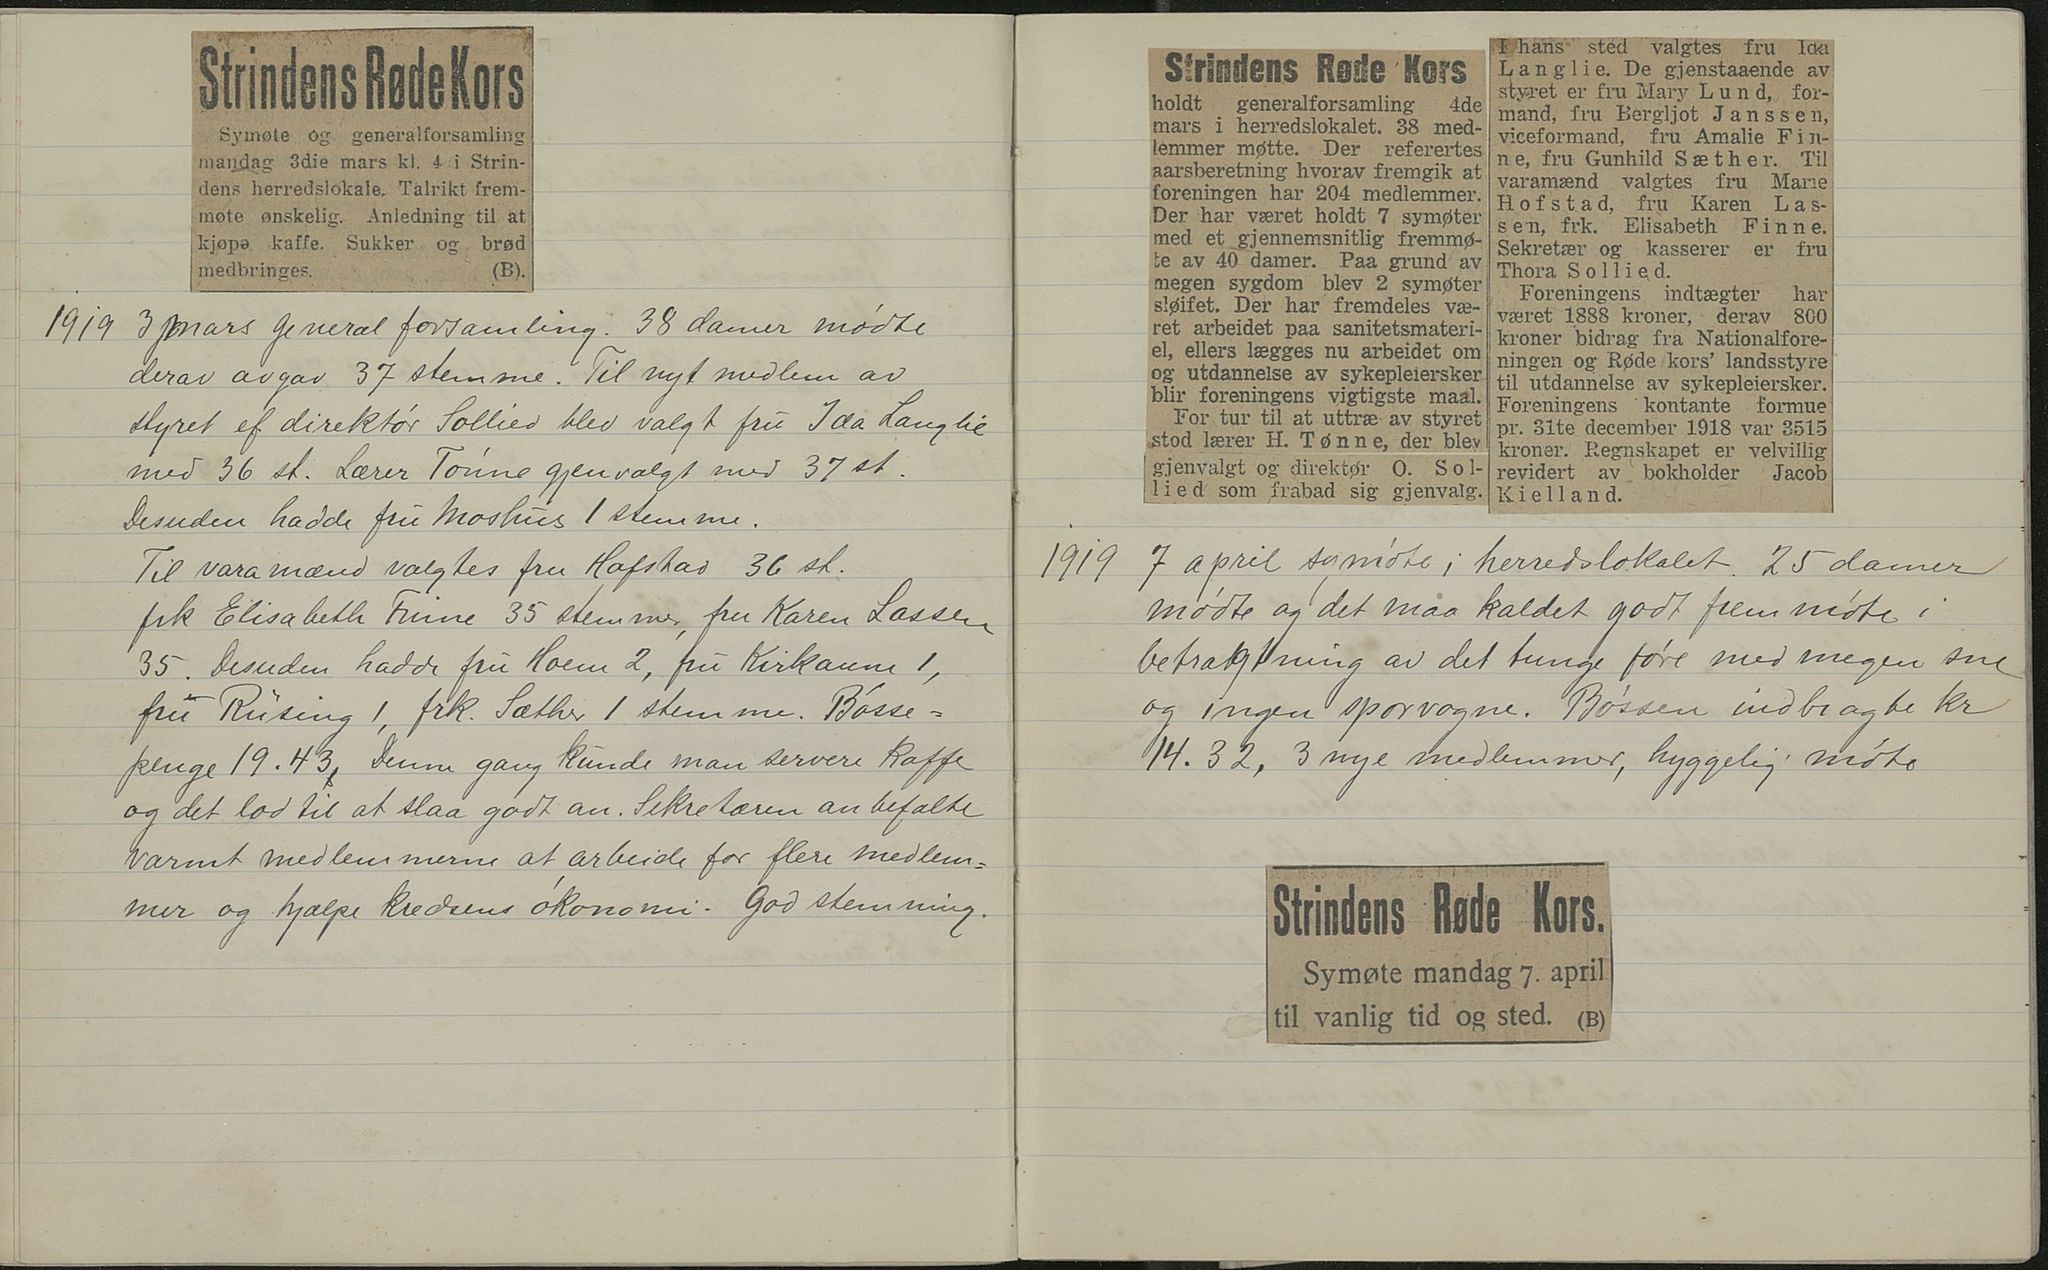 Strindens Røde Kors
Symøte og generalforsamling
mandag 3die mars kl. 4 i Strin-
dens herredslokale. Talrikt frem-
møte ønskelig. Anledning til at
kjøpe kaffe. Sukker og brød
medbringes. (B).
1919 3 mars general forsamling. 38 damer mødte
derav avgav 37 stemme. Til nyt medlem av
styret ef direktór Sollied blev valgt fru Ida Langlie
med 36 st. Lærer Tónne gjenvalgt med 37 st.
Desuden hadde fru Moshus 1 stemme.
Til varamænd valgtes fru Hofstad 36 st.
frk Elisabeth Finne 35 stemmer, fru Karen Lassen
35. Desuden hadde fru Hoem 2, fru Kirkaune 1,
fru Rüsing 1, frk. Sæther 1 stemme. Bósse=
penge 19.43, Denne gang kunde man servere kaffe
og det lod til at slaa godt an. Sekretæren anbefalte
varmt medlemmerne at arbeide for flere medlem=
mer og hjælpe kredsens ókonomi. God stemning.
Strindens Røde Kors
holdt generalforsamling 4de
mars i herredslokalet. 38 med-
lemmer møtte. Der referertes
aarsberetning hvorav fremgik at
foreningen har 204 medlemmer.
Der har været holdt 7 symøter
med et gjennemsnitlig fremmø-
te av 40 damer. Paa grund av
megen sygdom blev 2 symøter
sløifet. Der har fremdeles væ-
ret arbeidet paa sanitetsmateri-
el, ellers lægges nu arbeidet om
og utdannelse av sykepleiersker
blir foreningens vigtigste maal.
For tur til at uttræ av styret
stod lærer H. Tønne, der blev
gjenvalgt og direktør O. Sol-
lied som frabad sig gjenvalg.
I hans sted valgtes fru Ida
Langlie. De gjenstaaende av
styret er fru Mary Lund, for-
mand, fru Bergljot Janssen,
viceformand, fru Amalie Fin-
ne, fru Gunhild Sæther. Til
varamænd valgtes fru Marie
Hofstad, fru Karen Las-
sen, frk. Elisabeth Finne.
Sekretær og kasserer er fru
Thora Sollied.
Foreningens indtægter har
været 1888 kroner, derav 800
kroner bidrag fra Nationalfore-
ningen og Røde kors' landsstyre
til utdannelse av sykepleiersker.
Foreningens kontante formue
pr. 31te december 1918 var 3515
kroner. Regnskapet er velvillig
revidert av bokholder Jacob
Kielland.
1919 7 april symóte i herredslokalet. 25 damer
módte og det maa kaldet godt fremmóte i
betragtning av det tunge fóre med megen sne
og ingen sporvogne. Bóssen indbragte kr
14.32, 3 nye medlemmer, hyggelig móte
Strindens Røde Kors.
Symøte mandag 7. april
til vanlig tid og sted. (B)